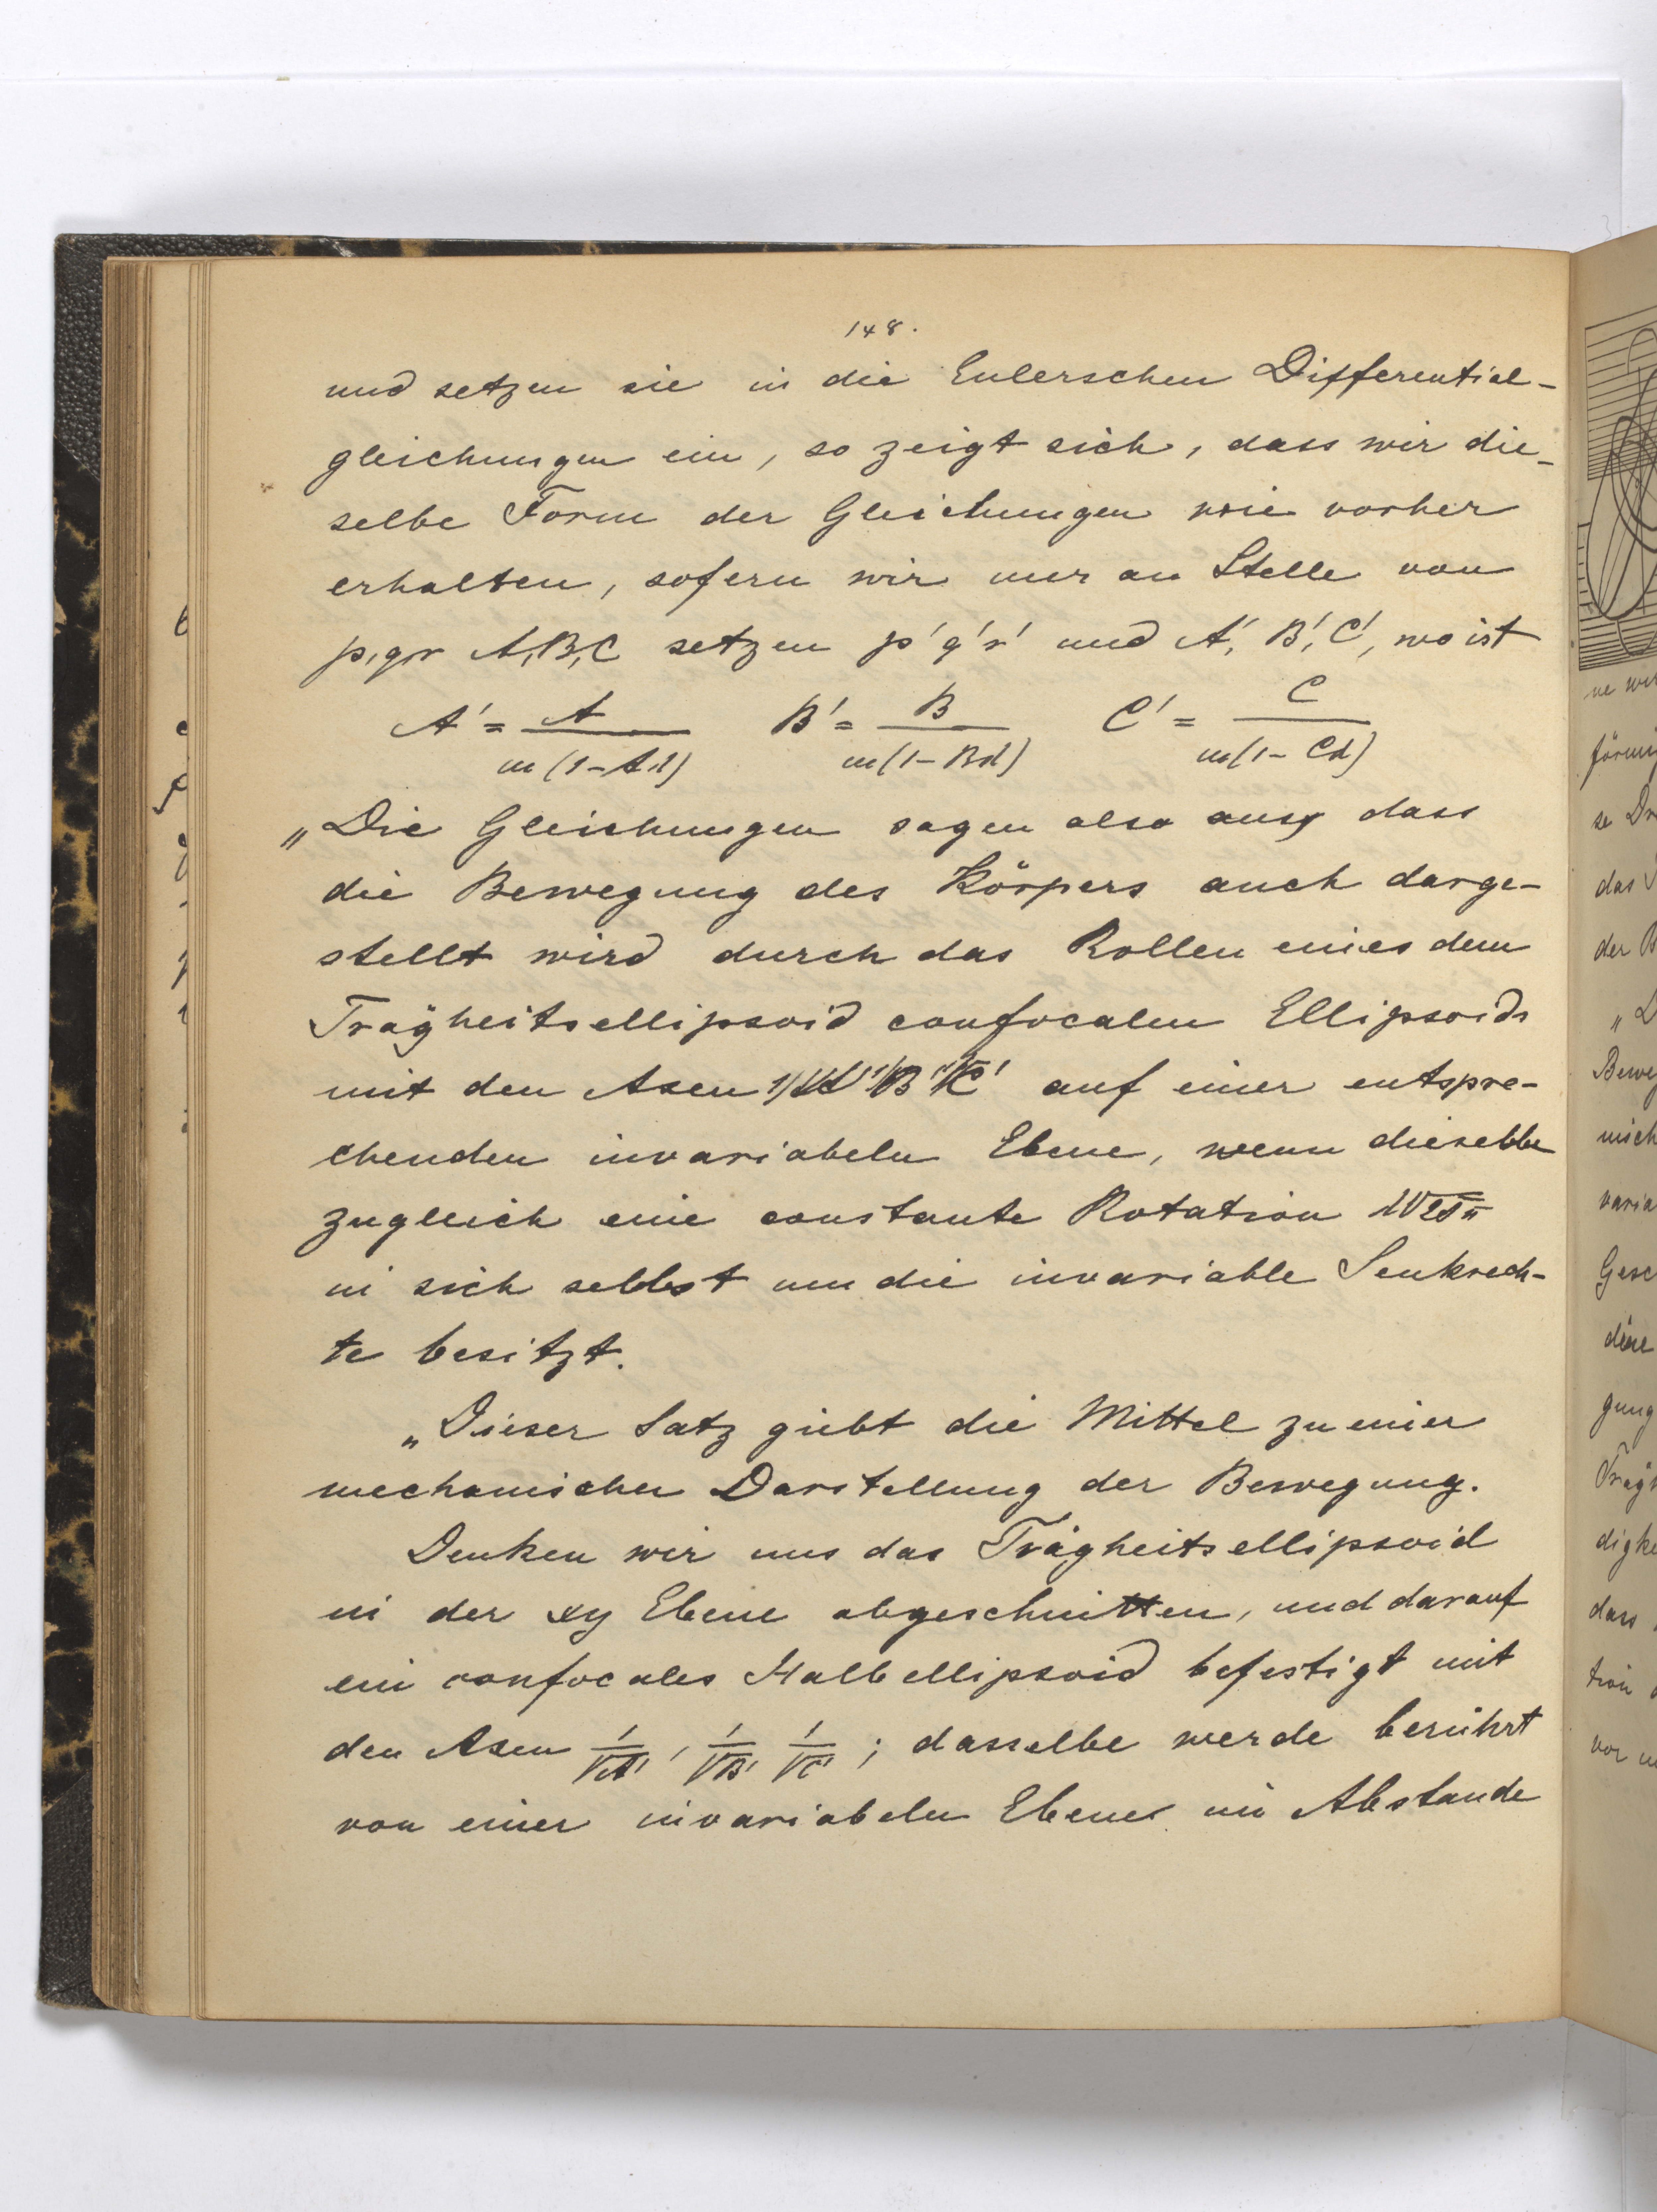 148.
und setzen sie in die Eulerschen Differential-
gleichungen ein, so zeigt sich, dass wir die-
selbe Form der Gleichungen wie vorher
erhalten, sofern wir nur an Stelle von
p,q,r A,B,C setzen p' q' r' und A', B', C', wo ist
A' = A / m(1-Aλ)   B' = B / m(1-Bλ)   C' = C / m(1-Cλ)
„Die Gleichungen sagen also aus, dass
die Bewegung des Körpers auch darge-
stellt wird durch das Rollen eines dem
Trägheitsellipsoid confocalen Ellipsoids
mit den Axen 1/√A' 1/√B' 1/√C' auf einer entspre-
chenden invariabeln Ebene, wenn dieselbe
zugleich eine constante Rotation
in sich selbst um die invariable Senkrech-
te besitzt.
„Dieser Satz giebt die Mittel zu einer
mechanischen Darstellung der Bewegung.
Denken wir uns das Trägheitsellipsoid
in der xy Ebene abgeschnitten, und darauf
ein confocales Halbellipsoid befestigt mit
den Axen 1/√A', 1/√B' 1/√C' ; dasselbe werde berührt
von einer invariabeln Ebene im Abstande
ne
förmig
se
das
der
Bewe
nisch
varia
Gesc
diese
gung
Träg
digke
dass
tion
vor